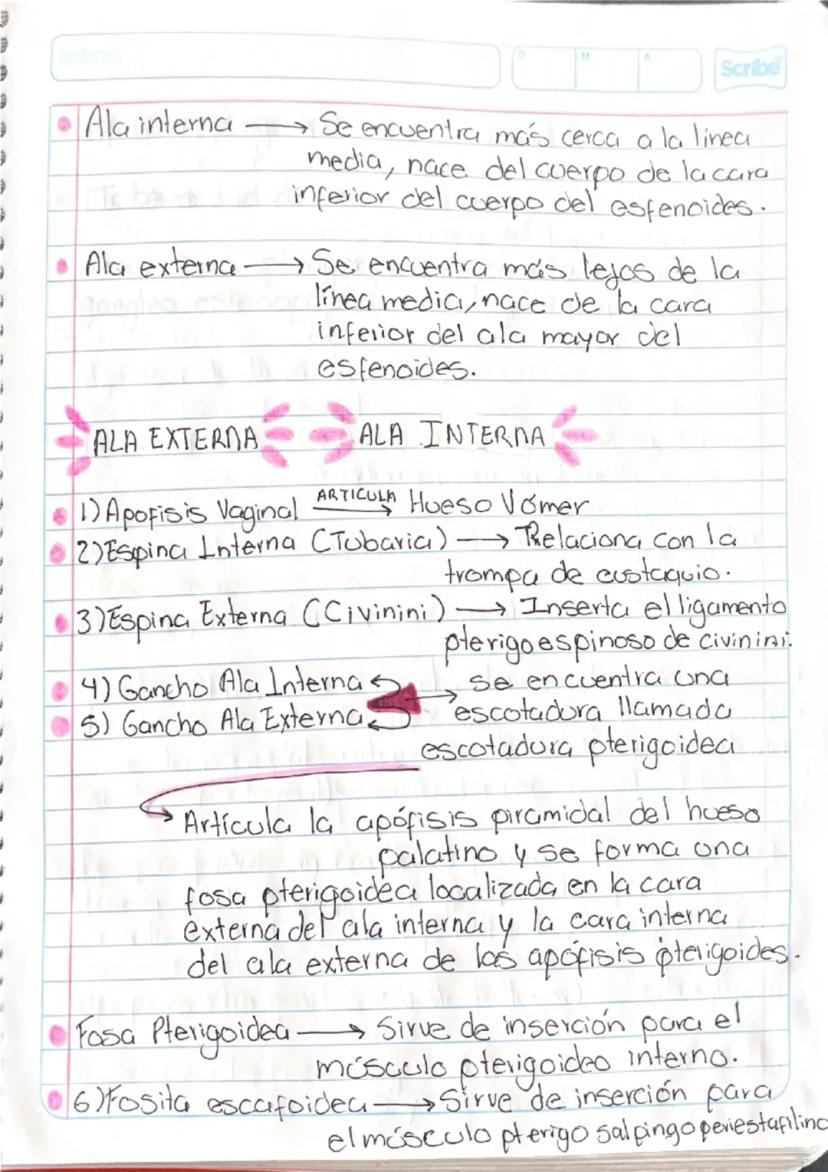 D M A Scribe
Ala interna → Se encuentra más cerca a la línea
media, nace del cuerpo de la cara
inferior del cuerpo del esfenoides.
Ala externa → Se encuentra más lejos de la
línea media, nace de la cara
inferior del ala mayor del
esfenoides.
ALA EXTERNA ALA INTERNA
1) Apofisis Vaginal ARTICULA → Hueso Vómer
2) Espina Interna (Tubaria) → Relaciona con la
trompa de eustaquio.
3) Espina Externa (Civinini) → Inserta el ligamento
pterigoespinoso de civinini.
4) Gancho Ala Interna → se encuentra una
5) Gancho Ala Externa escotadura llamada
escotadura pterigoidea
→ Artícula la apófisis piramidal del hueso
palatino y se forma una
fosa pterigoidea localizada en la cara
externa del ala interna y la cara interna
del ala externa de las apófisis pterigoides.
Fosa Pterigoidea → Sirve de inserción para el
músculo pterigoideo interno.
6) Fosita escafoidea → Sirve de inserción para
el músculo pterigo salpingo periestafilino